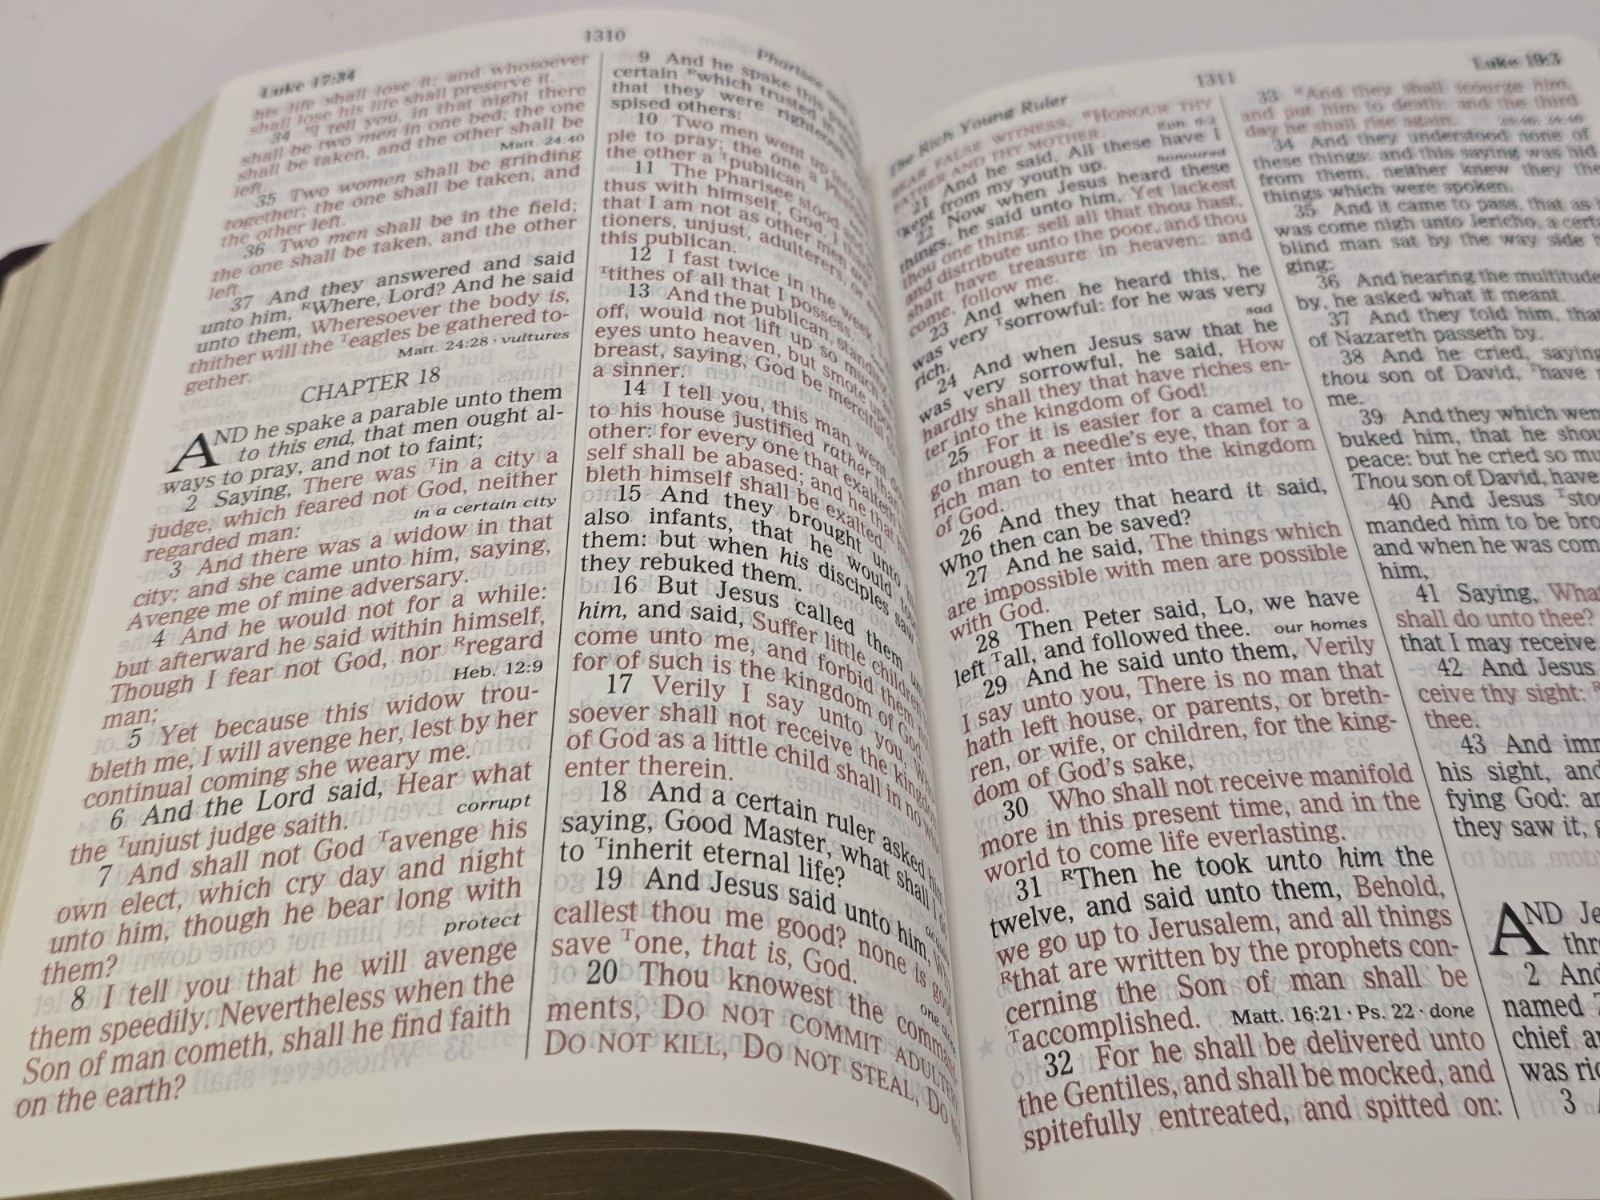 Luke 17:34
1310
his life shall lose it; and whosoever
shall lose his life shall preserve it.
34 ᴿI tell you, in that night there
shall be two men in one bed; the one
shall be taken, and the other shall be
left. Matt. 24:40
35 Two women shall be grinding
together; the one shall be taken, and
the other left.
36 Two men shall be in the field;
the one shall be taken, and the other
left.
37 And they answered and said
unto him, ᴿWhere, Lord? And he said
unto them, Wheresoever the body is,
thither will the ᵀeagles be gathered to-
gether. Matt. 24:28 · vultures
CHAPTER 18
AND he spake a parable unto them
to this end, that men ought al-
ways to pray, and not to faint;
2 Saying, There was ᵀin a city a
judge, which feared not God, neither
regarded man: in a certain city
3 And there was a widow in that
city; and she came unto him, saying,
Avenge me of mine adversary.
4 And he would not for a while:
but afterward he said within himself,
Though I fear not God, nor ᴿregard
man; Heb. 12:9
5 Yet because this widow trou-
bleth me, I will avenge her, lest by her
continual coming she weary me.
6 And the Lord said, Hear what
the ᵀunjust judge saith. corrupt
7 And shall not God ᵀavenge his
own elect, which cry day and night
unto him, though he bear long with
them? protect
8 I tell you that he will avenge
them speedily. Nevertheless when the
Son of man cometh, shall he find faith
on the earth?
Pharisee
9 And he spake this
certain ᴿwhich trusted in
that they were righteous,
spised others:
10 Two men went up
ple to pray; the one a
the other a ᵀpublican.
11 The Pharisee stood and
thus with himself, God, I thank
that I am not as other men are,
tioners, unjust, adulterers, or
this publican.
12 I fast twice in the week,
ᵀtithes of all that I possess.
13 And the publican, standing
off, would not lift up so much
eyes unto heaven, but smote upon
breast, saying, God be merciful to
a sinner.
14 I tell you, this man went
to his house justified rather than
other: for every one that exalteth
self shall be abased; and he that
bleth himself shall be exalted.
15 And they brought unto
also infants, that he would
them: but when his disciples saw
they rebuked them.
16 But Jesus called them
him, and said, Suffer little children
come unto me, and forbid them
for of such is the kingdom of God.
17 Verily I say unto you,
soever shall not receive the kingdom
of God as a little child shall in no
enter therein.
18 And a certain ruler asked
saying, Good Master, what shall I
to ᵀinherit eternal life?
19 And Jesus said unto him,
callest thou me good? none is
save ᵀone, that is, God.
20 Thou knowest the
ments, DO NOT COMMIT
DO NOT KILL, DO NOT STEAL, DO
The Rich Young Ruler
1311
BEAR FALSE WITNESS, ᴿHONOUR THY
FATHER AND THY MOTHER.
21 And he said, All these have I
ᵀkept from my youth up. honoured
22 Now when Jesus heard these
things, he said unto him, Yet lackest
thou one thing: sell all that thou hast,
and distribute unto the poor, and thou
shalt have treasure in heaven: and
come, follow me.
23 And when he heard this, he
was very ᵀsorrowful: for he was very
rich. sad
24 And when Jesus saw that he
was very sorrowful, he said, How
hardly shall they that have riches en-
ter into the kingdom of God!
25 For it is easier for a camel to
go through a needle's eye, than for a
rich man to enter into the kingdom
of God.
26 And they that heard it said,
Who then can be saved?
27 And he said, The things which
are impossible with men are possible
with God.
28 Then Peter said, Lo, we have
left ᵀall, and followed thee. our homes
29 And he said unto them, Verily
I say unto you, There is no man that
hath left house, or parents, or breth-
ren, or wife, or children, for the king-
dom of God's sake,
30 Who shall not receive manifold
more in this present time, and in the
world to come life everlasting.
31 ᴿThen he took unto him the
twelve, and said unto them, Behold,
we go up to Jerusalem, and all things
ᴿthat are written by the prophets con-
cerning the Son of man shall be
ᵀaccomplished. Matt. 16:21 · Ps. 22 · done
32 For he shall be delivered unto
the Gentiles, and shall be mocked, and
spitefully entreated, and spitted on:
Luke 19:3
33 ᴿAnd they shall scourge him,
and put him to death: and the third
day he shall rise again.
34 And they understood none of
these things: and this saying was hid
from them, neither knew they the
things which were spoken.
35 And it came to pass, that as
was come nigh unto Jericho, a
blind man sat by the way side
ging:
36 And hearing the multitude
by, he asked what it meant.
37 And they told him, that
of Nazareth passeth by.
38 And he cried, saying
thou son of David, ᵀhave
me.
39 And they which
buked him, that he
peace: but he cried so
Thou son of David, have
40 And Jesus
manded him to be
and when he was
him,
41 Saying,
shall do unto thee?
that I may receive
42 And Jesus
ceive thy sight:
thee.
43 And
his sight, and
fying God:
they saw it,
AND
2 And
named
chief
was
3